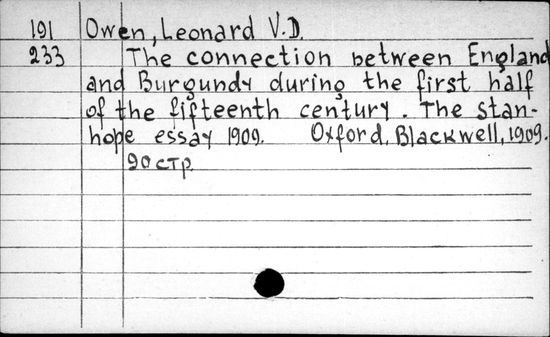 191 Owen, Leonard V.D.
233 The connection between England
and Burgundy during the first half
of the fifteenth century. The stan-
hope essay 1909. Oxford, Blackwell, 1909.
90 стр.